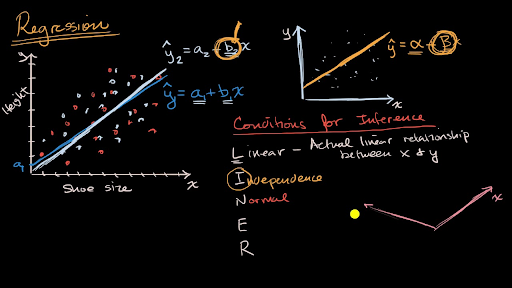 Regression
ŷ₂ = a₂ + b₂x
y
Height
ŷ = a₁ + b₁x
a₁
Shoe size
x
y
ŷ = α + βx
x
Conditions for Inference
Linear – Actual linear relationship
between x & y
Independence
Normal
E
R
x